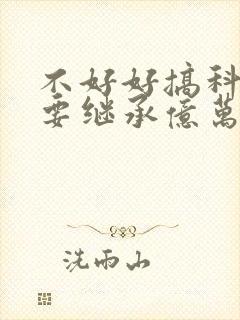 不好好搞科
要继承億萬
洗雨山